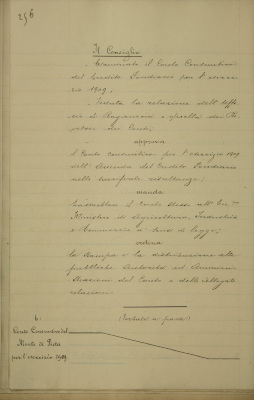 256
Il Consiglio
Esaminato il Conto Consuntivo
del Credito Fondiario per l'eserci-
zio 1909.
Sentita la relazione dell'Uffi-
cio di Ragioneria e quella dei Re-
visori dei Conti;
approva
il Conto consuntivo per l'esercizio 1909
dell'Azienda del Credito Fondiario
nelle
manda
il Conto stesso all'
Ministero di Agricoltura, Industria
e Commercio a sensi di legge;
ordina
la stampa e la distribuzione alle
pubbliche Autorità ed Ammini-
strazioni del Conto e delle allegate
relazioni.
6.
(Verbale a parte)
Conto Consuntivo del
Monte di Pietà
per l'esercizio 1909